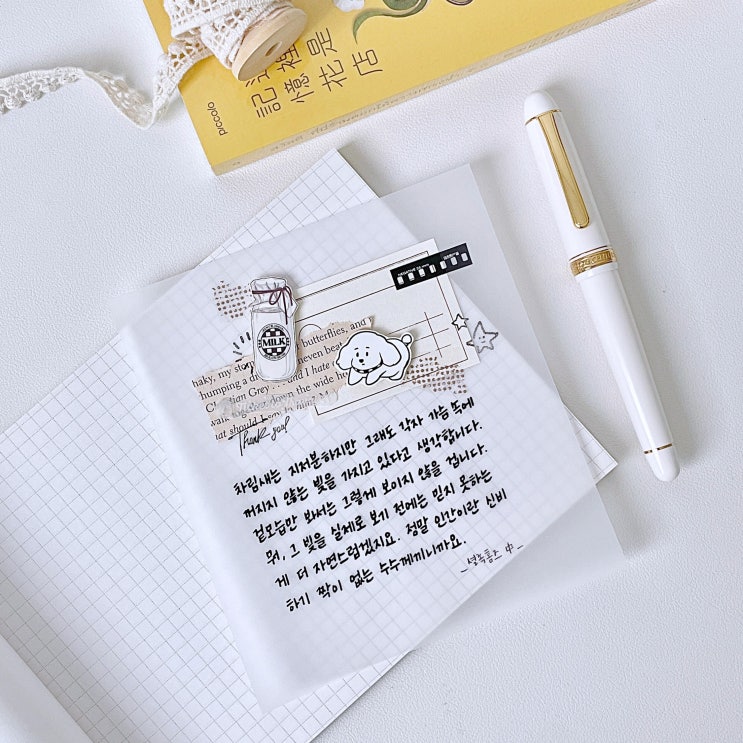 piccolo
記憶是
花店
MILK
butterflies, and
haky, my sto
even beat
humping a d
Christian Grey . . . and I hate
walk down the wide h
hat should I say to him
Thank you!
차림새는 지저분하지만 그래도 각자 가슴 속에
꺼지지 않는 빛을 가지고 있다고 생각합니다.
겉모습만 봐서는 그렇게 보이지 않을 겁니다.
뭐, 그 빛을 실제로 보기 전에는 믿지 못하는
게 더 자연스럽겠지요. 정말 인간이란 신비
하기 짝이 없는 수수께끼니까요.
_셜록홈즈 中_